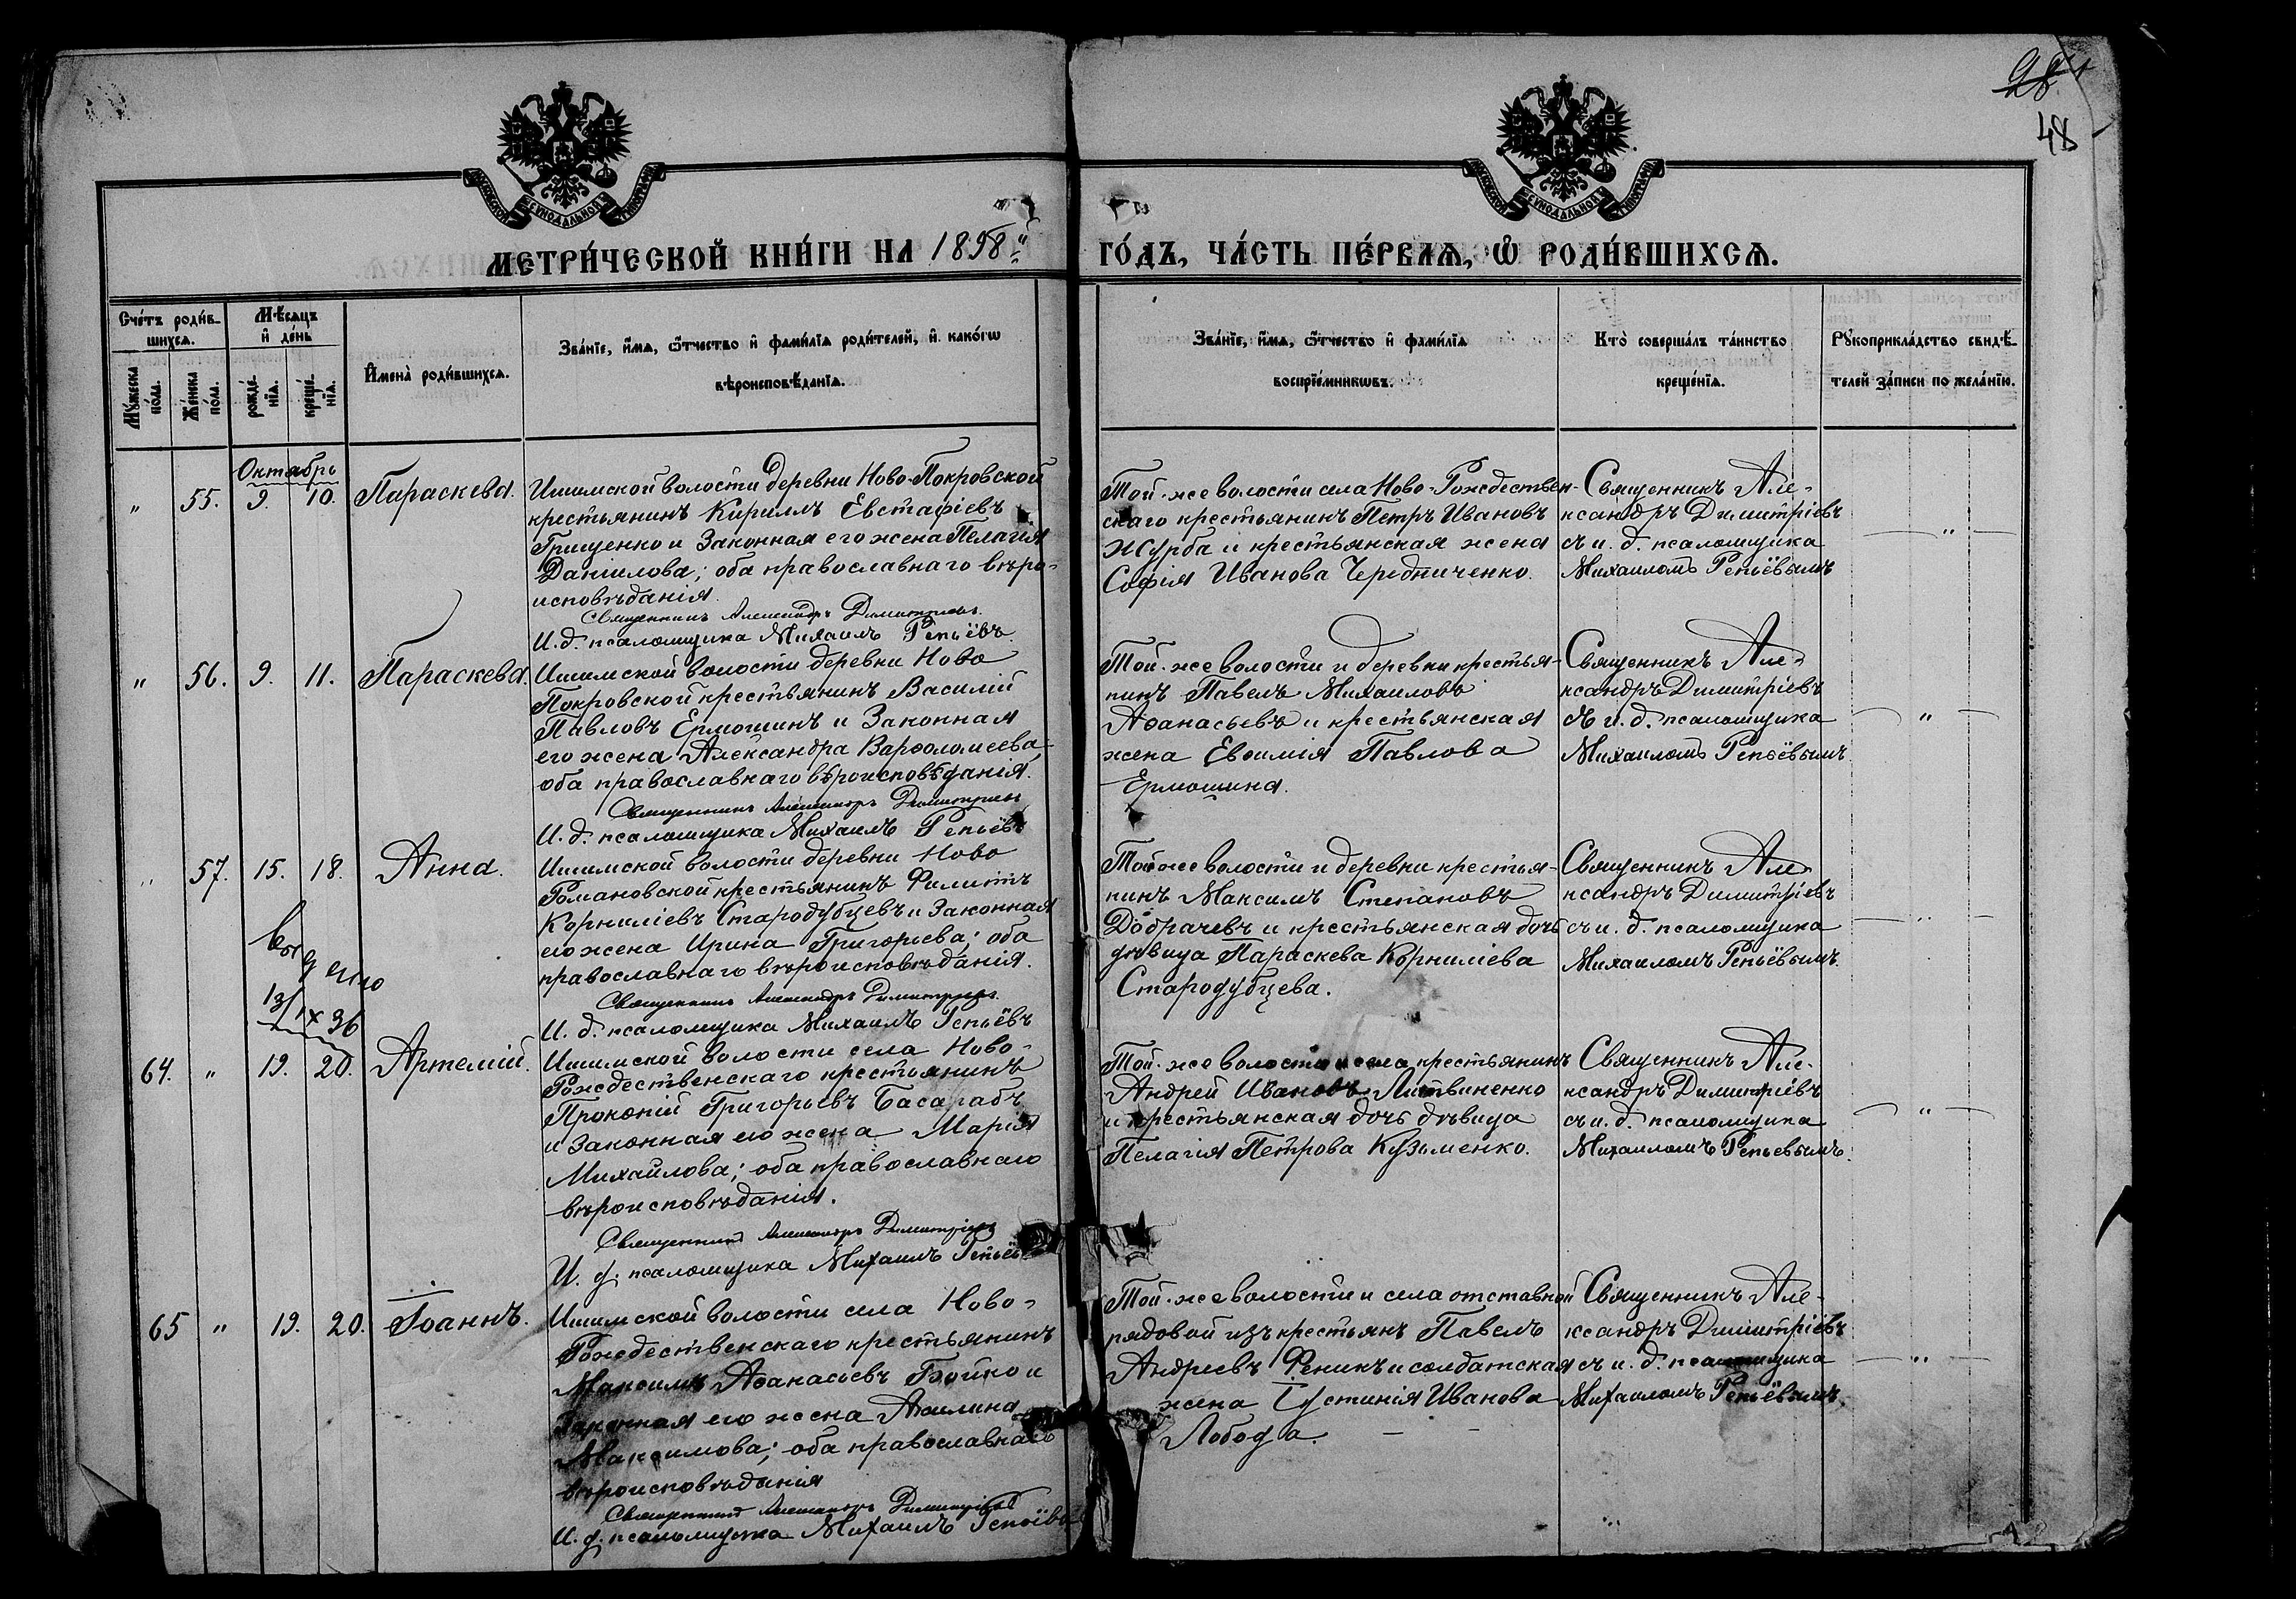 28
48
МЕТРИ́ЧЕСКОЙ КНИ́ГИ НА 1898й ГО́ДЪ, ЧА́СТЬ ПЕ́РВАѦ, Ѡ҆ РОДИ́ВШИХСѦ.
Сче́тъ роди́в-
шихсѧ.
Мꙋ́жеска по́ла.
Же́нска по́ла.
Мѣ́сѧцъ и҆ де́нь
рожде́-
нїѧ.
креще́-
нїѧ.
И҆мена̀ роди́вшихсѧ.
Зва́нїе, и҆́мѧ, ѻ҆́тчество и҆ фами́лїѧ роди́телей, и҆ како́гѡ
вѣроисповѣ́данїѧ.
Зва́нїе, и҆́мѧ, ѻ҆́тчество и҆ фами́лїѧ
воспрїе́мникѡвъ.
Кто̀ соверша́лъ та́инство
креще́нїѧ.
Рꙋкоприкла́дство свидѣ́-
телей за́писи по жела́нїю.
Октябрь
" 55. 9. 10. Параскева.
Ишимской волости деревни Ново-Покровской
крестьянинъ Кириллъ Евстафіевъ
Грищенко и законная его жена Пелагія
Даніилова; оба православнаго вѣро-
исповѣданія.
Священникъ Александръ Димитріевъ.
И. д. псаломщика Михаилъ Репьёвъ.
Той-же волости села Ново-Рождествен-
скаго крестьянинъ Петръ Ивановъ
Журба и крестьянская жена
Софія Иванова Чередниченко.
Священникъ Але-
ксандръ Димитріевъ
съ и. д. псаломщика
Михаиломъ Репьёвымъ
— " —
" 56. 9. 11. Параскева.
Ишимской волости деревни Ново
Покровской крестьянинъ Василій
Павловъ Ермошинъ и законная
его жена Александра Варѳоломеева;
оба православнаго вѣроисповѣданія.
Священникъ Александръ Димитріевъ
И. д. псаломщика Михаилъ Репьёвъ
Той-же волости и деревни крестья-
нинъ Павелъ Михаиловъ
Аѳанасьевъ и крестьянская
жена Евѳимія Павлова
Ермошина.
Священникъ Але-
ксандръ Димитріевъ
съ и. д. псаломщика
Михаиломъ Репьёвымъ.
— " —
" 57. 15. 18. Анна.
Ишимской волости деревни Ново
Романовской крестьянинъ Филиппъ
Корниліевъ Стародубцевъ и законная
его жена Ирина Григорьева; оба
православнаго вѣроисповѣданія.
Священникъ Александръ Димитріевъ.
И. д. псаломщика Михаилъ Репьёвъ
Той же волости и деревни крестья-
нинъ Максимъ Степановъ
Добрачевъ и крестьянская дочь
дѣвица Параскева Корниліева
Стародубцева.
Священникъ Але-
ксандръ Димитріевъ
съ и. д. псаломщика
Михаиломъ Репьёвымъ.
— " —
13/IX 36
64. " 19. 20. Артемій.
Ишимской волости села Ново-
Рождественскаго крестьянинъ
Прокопій Григорьевъ Басарабъ
и законная его жена Марія
Михайлова; оба православнаго
вѣроисповѣданія.
Священникъ Александръ Димитріевъ
И. д. псаломщика Михаилъ Репьёвъ
Той-же волости и села крестьянинъ
Андрей Ивановъ Литвиненко
и крестьянская дочь дѣвица
Пелагія Петрова Кузьменко.
Священникъ Але-
ксандръ Димитріевъ
съ и. д. псаломщика
Михаиломъ Репьевымъ.
— " —
65 " 19. 20. Іоаннъ.
Ишимской волости села Ново-
Рождественскаго крестьянинъ
Максимъ Аѳанасьевъ Бойко и
законная его жена Акилина
Максимова; оба православнаго
вѣроисповѣданія
Священникъ Александръ Димитріевъ
И. д. псаломщика Михаилъ Репьёвъ
Той-же волости и села отставной
рядовой изъ крестьянъ Павелъ
Андреевъ Феникъ и солдатская
жена Іустинія Иванова
Лобода. — —
Священникъ Але-
ксандръ Димитріевъ
съ и. д. псаломщика
Михаиломъ Репьёвымъ.
— " —